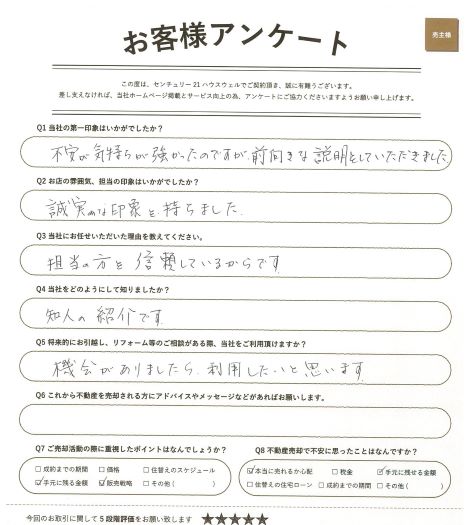 お客様アンケート
売主様
この度は、センチュリー21ハウスウェルでご契約頂き、誠に有難うございます。
差し支えなければ、当社ホームページ掲載とサービス向上の為、アンケートにご協力くださいますようお願い申し上げます。
Q1 当社の第一印象はいかがでしたか？
不安な気持ちが強かったのですが、前向きな説明をしていただきました
Q2 お店の雰囲気、担当の印象はいかがでしたか？
誠実な印象を持ちました。
Q3 当社にお任せいただいた理由を教えてください。
担当の方を信頼しているからです
Q4 当社をどのようにして知りましたか？
知人の紹介です
Q5 将来的にお引越し、リフォーム等のご相談がある際、当社をご利用頂けますか？
機会がありましたら、利用したいと思います
Q6 これから不動産を売却される方にアドバイスやメッセージなどがあればお願いします。
Q7 ご売却活動の際に重視したポイントはなんでしょうか？
□成約までの期間 □価格 □住替えのスケジュール
☑手元に残る金額 ☑販売戦略 □その他（ ）
Q8 不動産売却で不安に思ったことはなんですか？
☑本当に売れるか心配 □税金 ☑手元に残せる金額
□住替えの住宅ローン □成約までの期間 □その他（ ）
今回のお取引に関して5段階評価をお願い致します ★★★★★